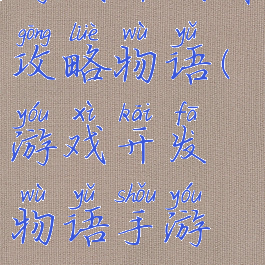 gōng lüè wù yǔ
攻略物语(
yóu xì kāi fā
游戏开发
wù yǔ shǒu yóu
物语手游